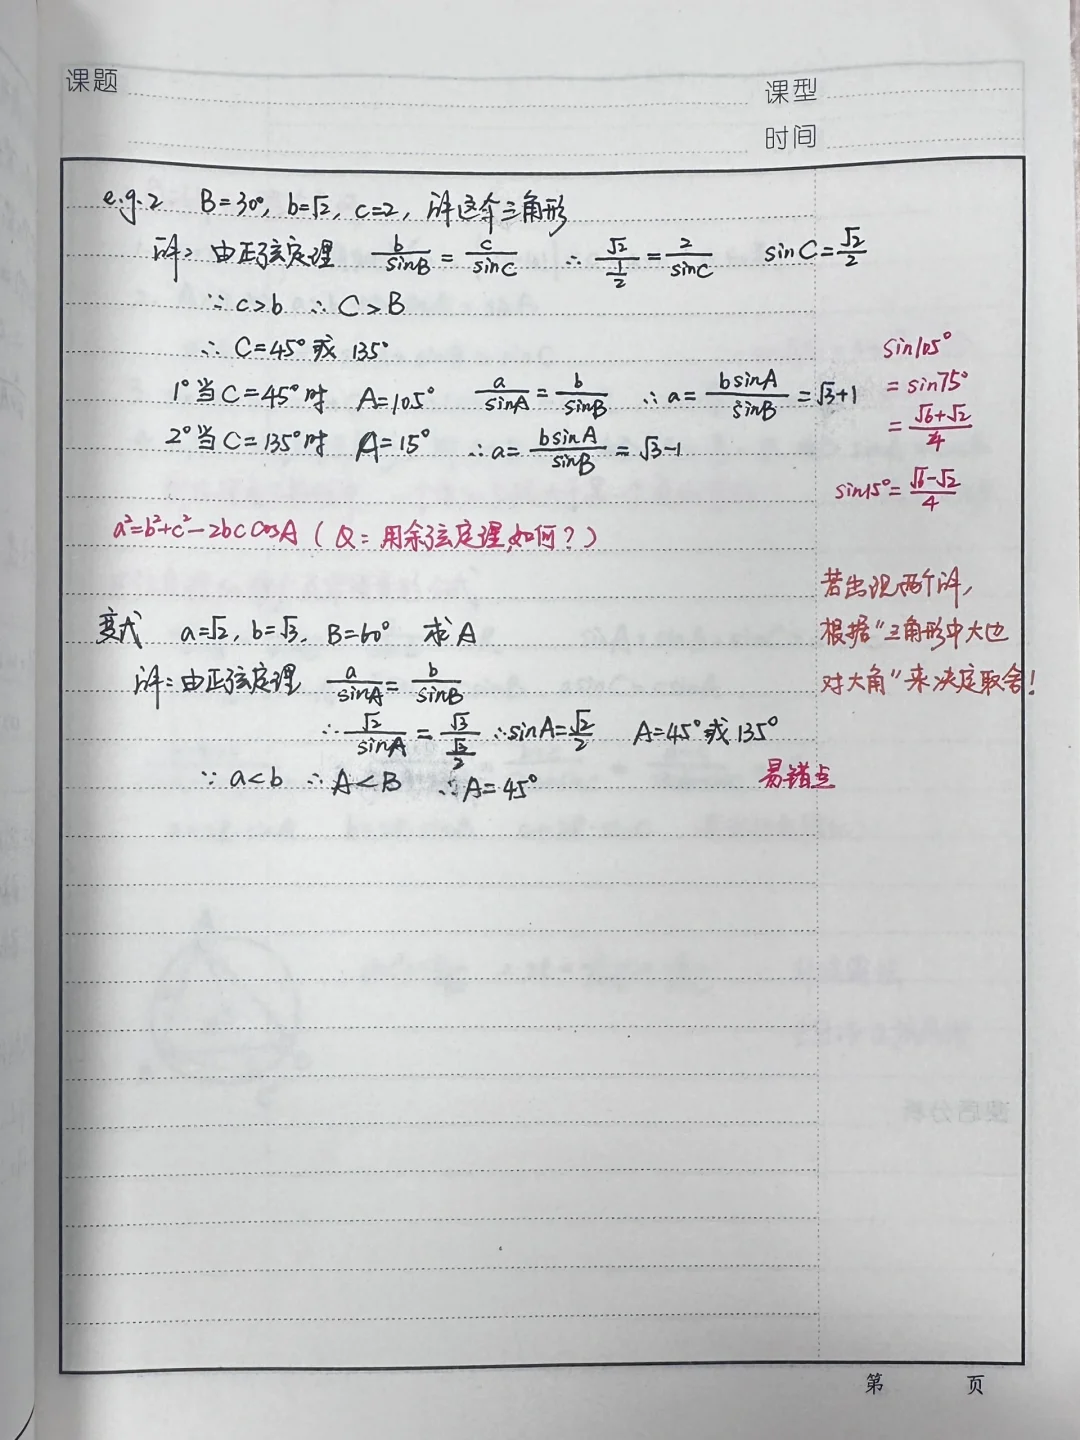 课题
课型
时间
e.g.2 B=30°, b=√2, c=2, 解这个三角形
解: 由正弦定理 b/sinB = c/sinC ∴ √2/(1/2) = 2/sinC sinC=√2/2
∵ c>b ∴ C>B
∴ C=45° 或 135°
1° 当C=45°时 A=105° a/sinA = b/sinB ∴ a= bsinA/sinB = √3+1
2° 当C=135°时 A=15° ∴ a= bsinA/sinB = √3-1
sin105°
= sin75°
= (√6+√2)/4
sin15°= (√6-√2)/4
a²=b²+c²-2bc cosA (Q: 用余弦定理,如何?)
变式 a=√2, b=√3, B=60° 求A
解: 由正弦定理 a/sinA = b/sinB
∴ √2/sinA = √3/(√3/2) ∴ sinA=√2/2 A=45° 或 135°
∵ a<b ∴ A<B ∴ A=45°
易错点
若出现两个解,
根据"三角形中大边
对大角"来决定取舍!
第 页